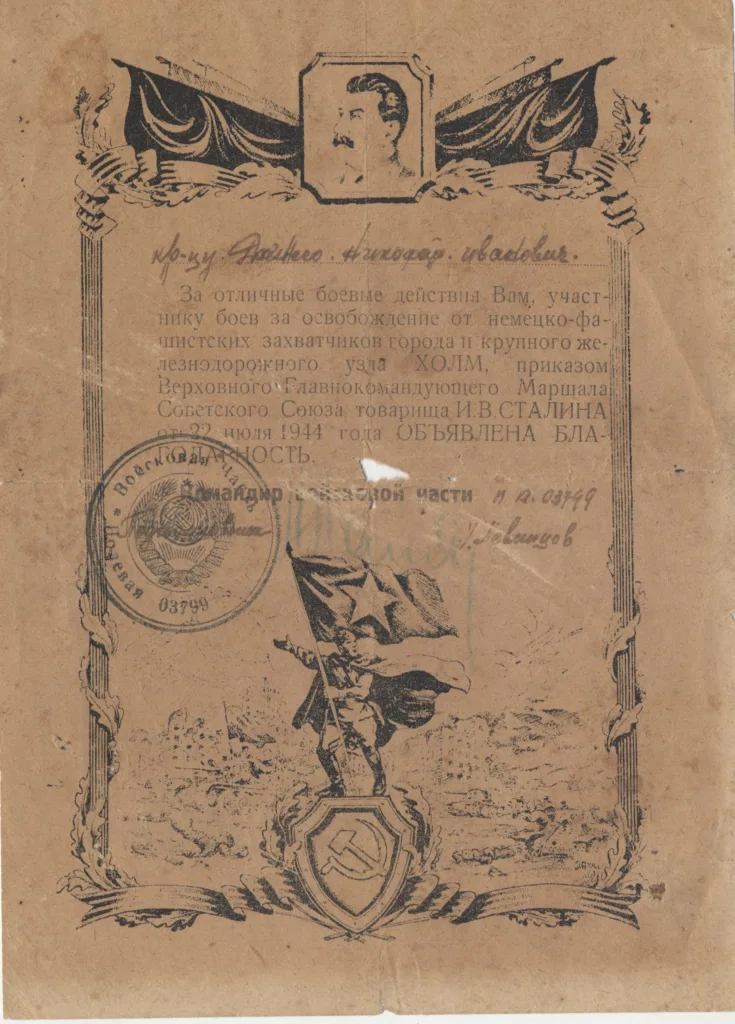 кр-цу. Николай. Иванович.
За отличные боевые действия Вам, участ-
нику боев за освобождение от немецко-фа-
шистских захватчиков города и крупного же-
лезнодорожного узла ХОЛМ, приказом
Верховного Главнокомандующего Маршала
Советского Союза товарища И.В.СТАЛИНА
от 22 июля 1944 года ОБЪЯВЛЕНА БЛА-
ГОДАРНОСТЬ.
Командир войсковой части п п. 03799
Войсковая часть
Полевая
03799